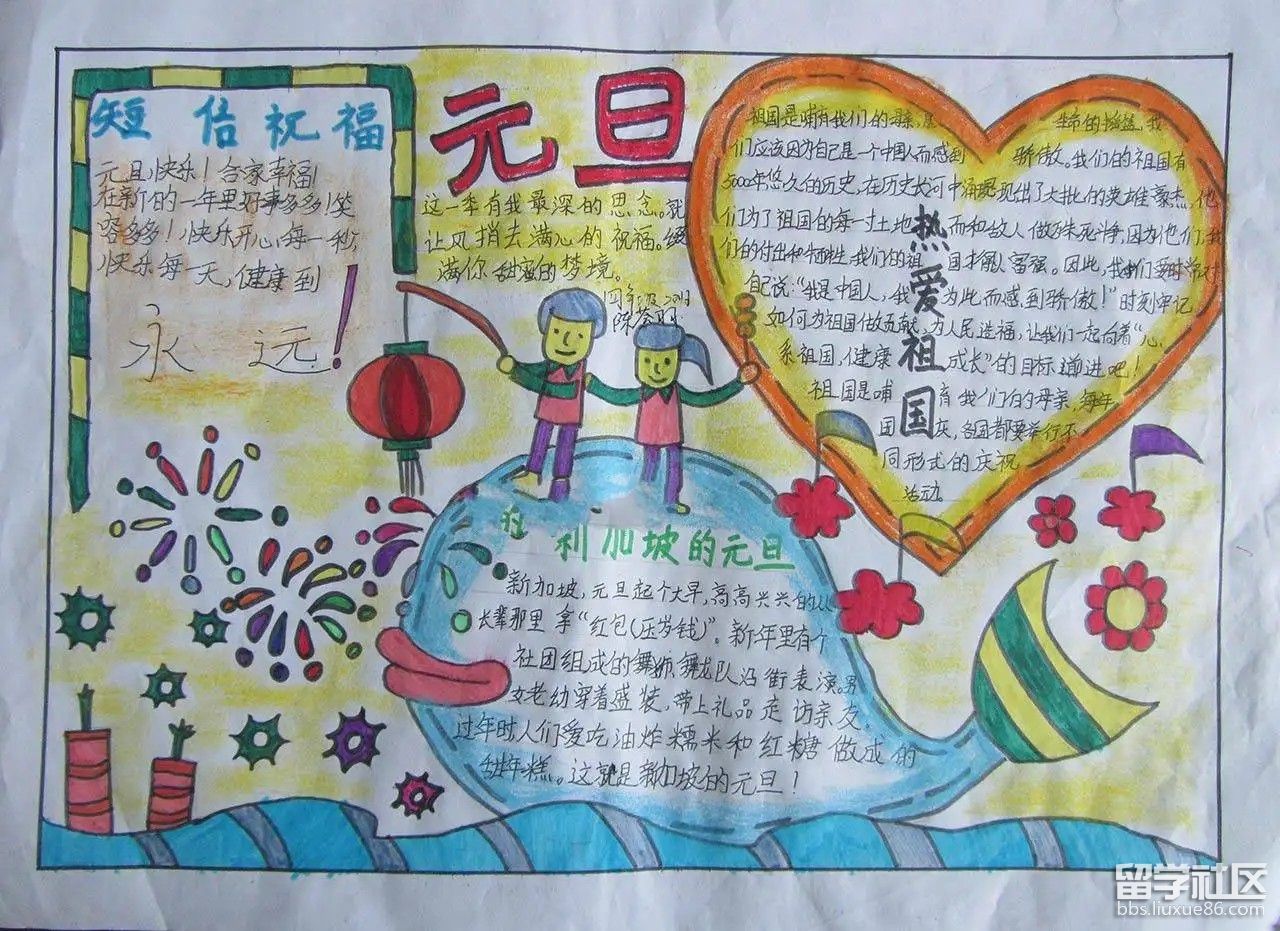 短信祝福
元旦快乐！合家幸福！
在新的一年里好事多多！笑
容多多！快乐开心每一秒，
快乐每一天，健康到
永远！
元旦
这一季有我最深的思念。就
让风捎去满心的祝福。缀
满你甜蜜的梦境。
四年级
热爱祖国
祖国是哺育我们的母亲，是生命的摇篮，我
们应该因为自己是一个中国人而感到骄傲。我们的祖国有
5000年悠久的历史，在历史长河中涌现出了大批的英雄豪杰，他
们为了祖国的每一土地而和敌人做殊死斗争，因为他们，我
们的付出和牺牲，我们的祖国才能富强。因此，我们要时常对
自己说：“我是中国人，我为此而感到骄傲！”时刻牢记
如何为祖国做贡献，为人民造福，让我们一起向着“心
系祖国，健康成长”的目标进吧！
祖国是哺育我们的母亲，每年
国庆，各国都要举行不
同形式的庆祝
活动
利加坡的元旦
新加坡，元旦起个大早，高高兴兴的从
长辈那里拿“红包（压岁钱）”。新年里有个
社团组成的舞狮舞龙队沿街表演，男
女老幼穿着盛装，带上礼品走访亲友，
过年时人们爱吃油炸糯米和红糖做成的
甜年糕。这就是新加坡的元旦！
留学社区
bbs.liuxue86.com